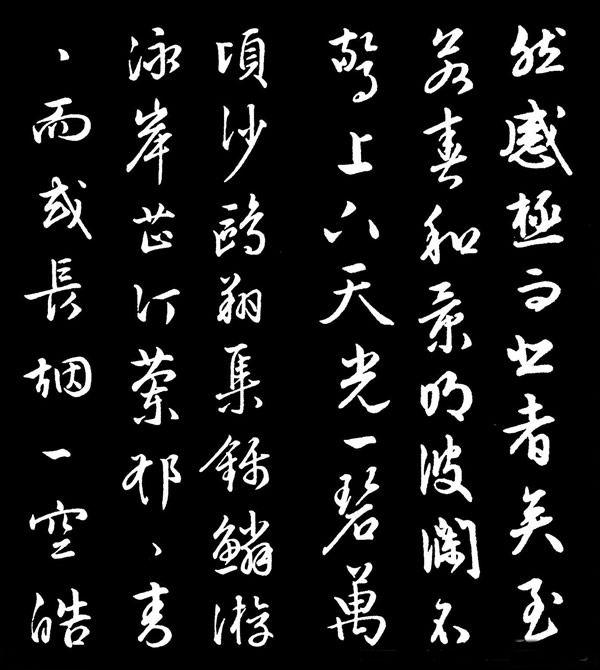 然感極而悲者矣至
若春和景明波瀾不
驚上下天光一碧萬
頃沙鷗翔集錦鱗游
泳岸芷汀蘭郁、青
、而或長烟一空皓